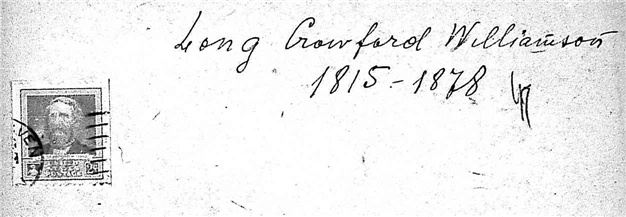 Long Crawford Williamson
1815-1878
VEN